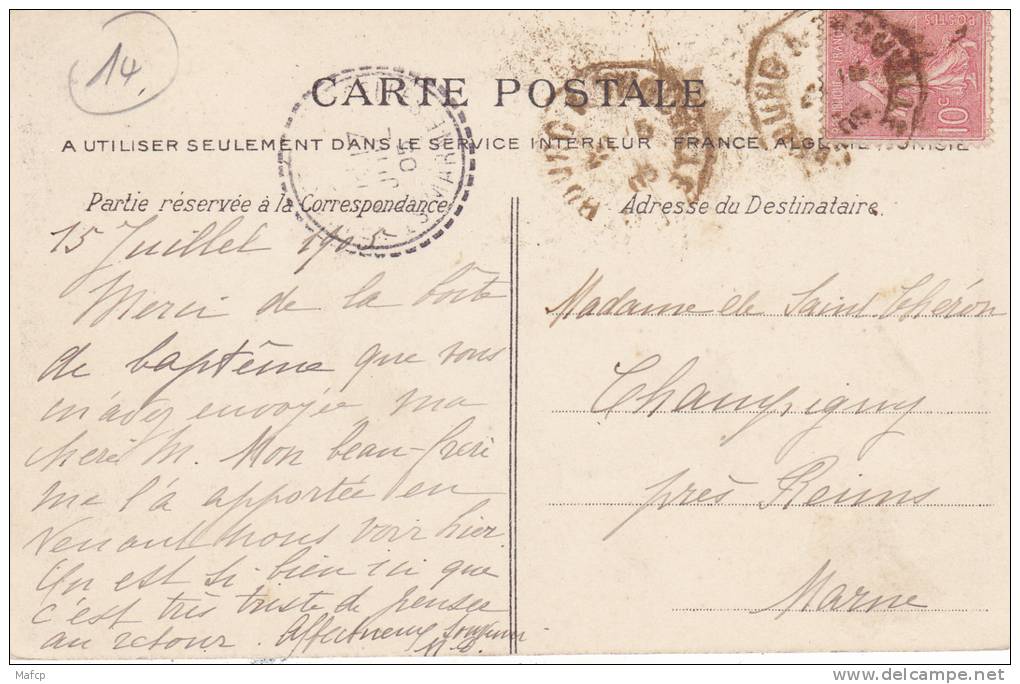 14.
CARTE POSTALE
A UTILISER SEULEMENT DANS LE SERVICE INTERIEUR FRANCE, ALGERIE, TUNISIE
Partie réservée à la Correspondance
Adresse du Destinataire
POSTES
10c
17
JUIL
05
MARNE
15 Juillet 1905
Merci de la boîte
de baptême que vous
m'avez envoyée ma
chère M. Mon beau-frère
me l'a apportée en
venant nous voir hier
On est si bien ici que
c'est très triste de penser
au retour.
Madame de Saint Théron
Champigny
près Reims
Marne
Mafcp
delcampe.net